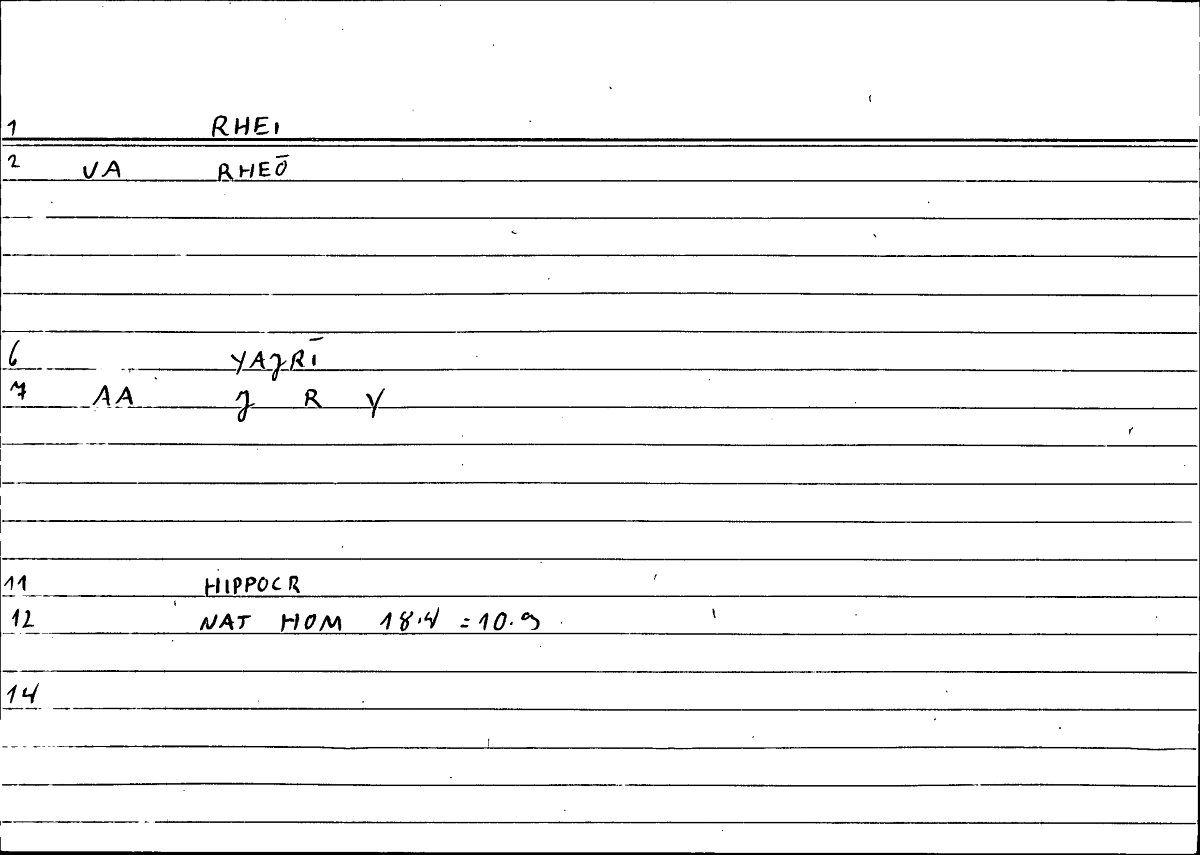 1 RHEI
2 VA RHEŌ
6 YAJRĪ
7 AA J R Y
11 HIPPOCR
12 NAT HOM 18.4 = 10.9
14